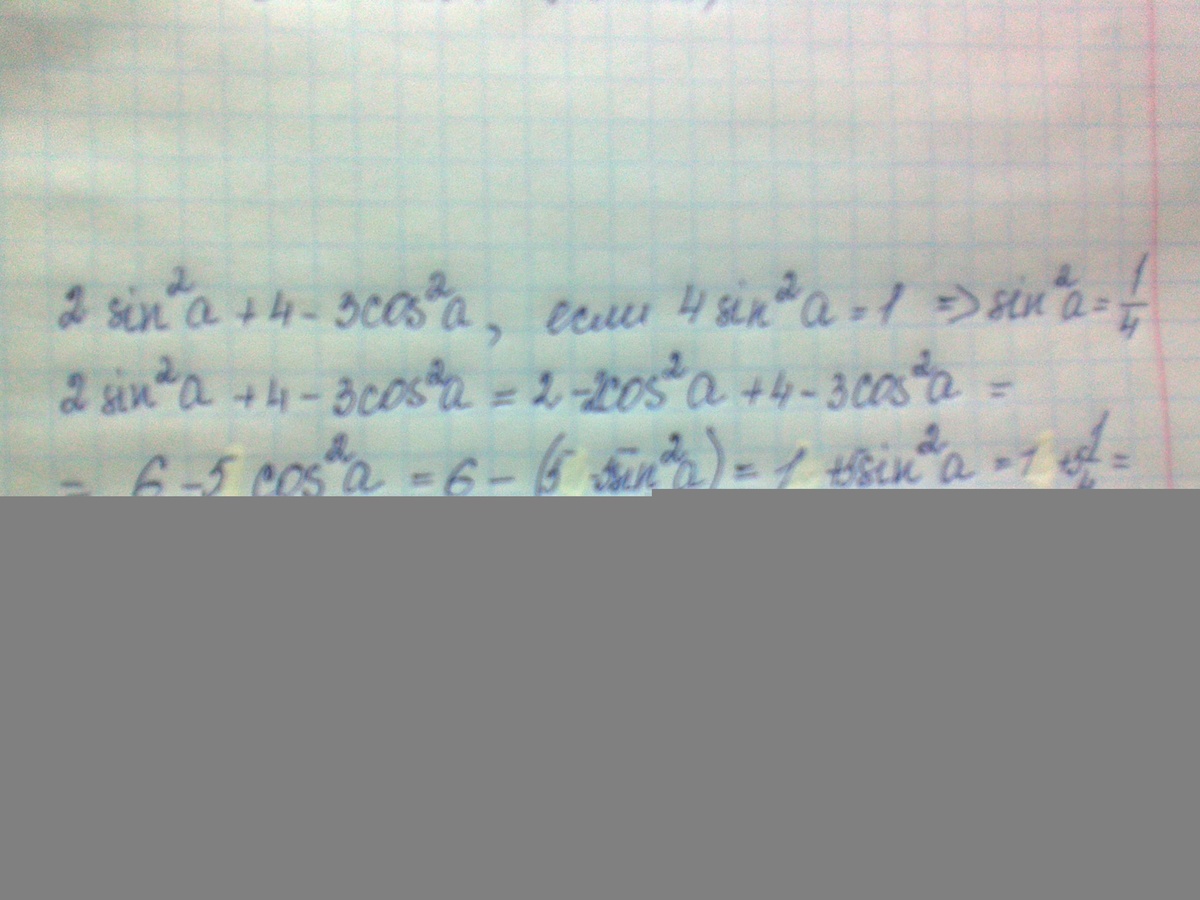 2 sin²a + 4 - 3cos²a, если 4 sin²a = 1 => sin²a = 1/4
2 sin²a + 4 - 3cos²a = 2 - 2cos²a + 4 - 3cos²a =
= 6 - 5 cos²a = 6 - (5 - 5sin²a) = 1 + 5sin²a = 1 + 5 1/4 =